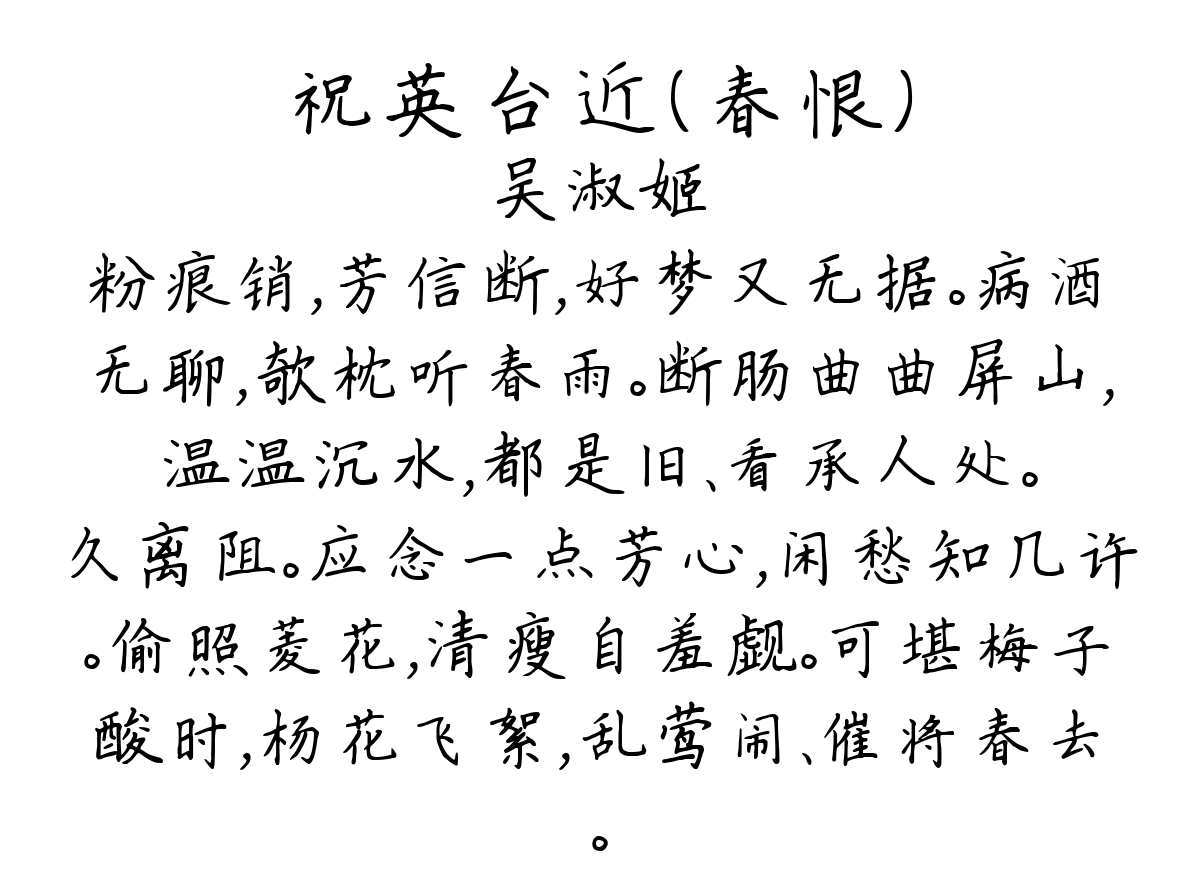 祝英台近(春恨)
吴淑姬
粉痕销,芳信断,好梦又无据。病酒
无聊,欹枕听春雨。断肠曲曲屏山,
温温沉水,都是旧、看承人处。
久离阻。应念一点芳心,闲愁知几许
。偷照菱花,清瘦自羞觑。可堪梅子
酸时,杨花飞絮,乱莺闹、催将春去
。